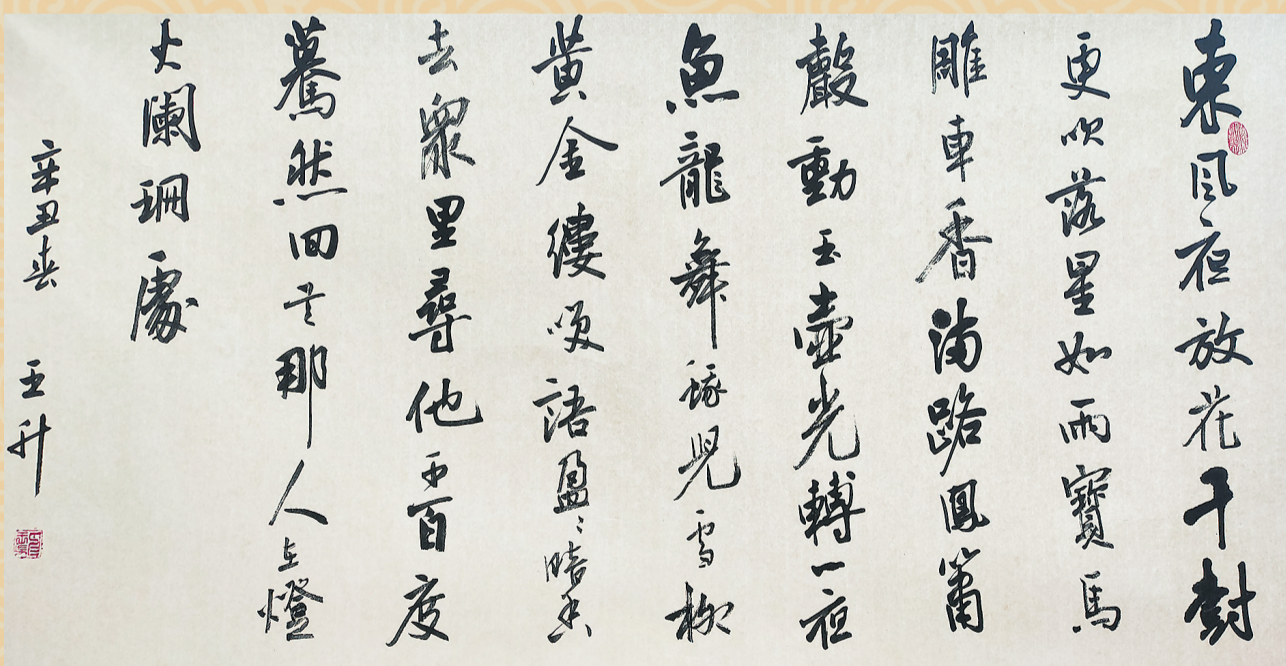 東風夜放花千樹
更吹落星如雨寶馬
雕車香滿路鳳簫
聲動玉壺光轉一夜
魚龍舞蛾兒雪柳
黃金縷笑語盈〻暗香
去眾里尋他千百度
驀然回首那人在燈
火闌珊處
辛丑春 王升